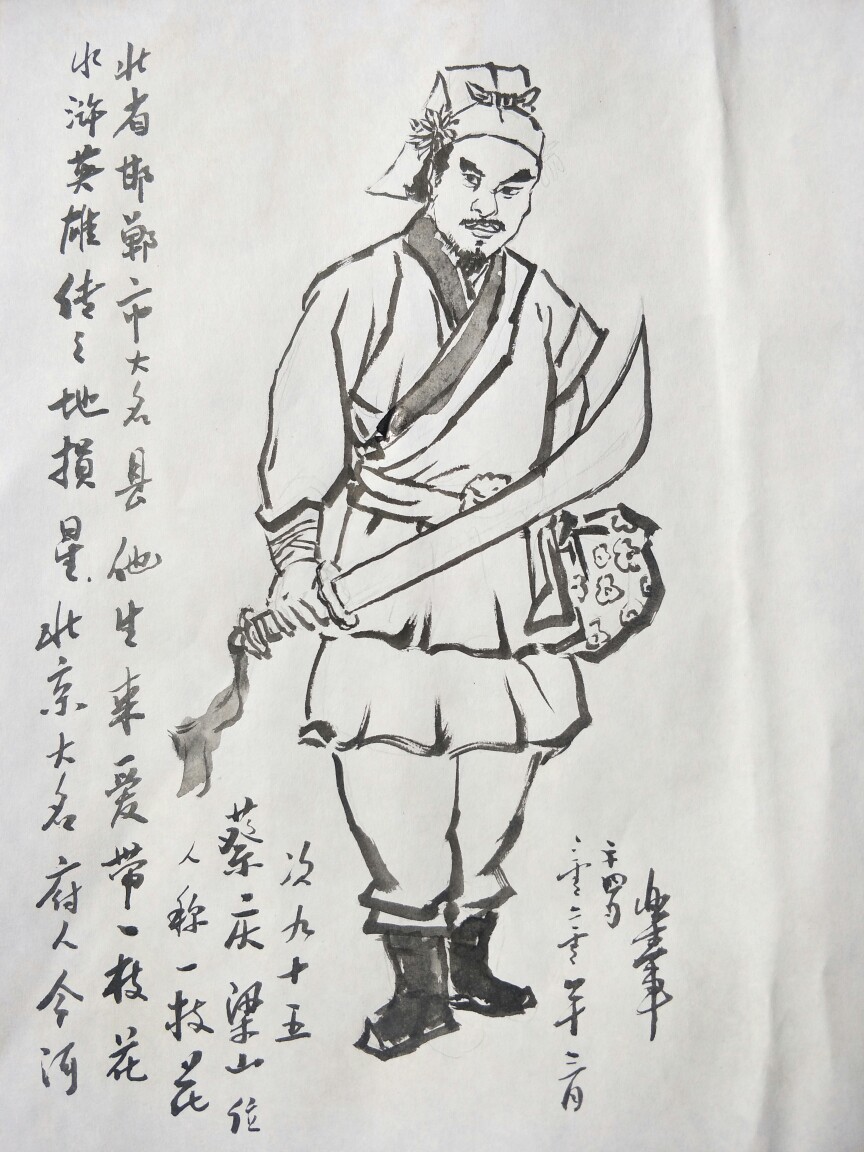 水浒英雄传之地损星北京大名府人今河
北省邯郸市大名县他生来爱带一枝花
人称一枝花
蔡庆梁山位
次九十五
二零二零年三月
二十四日